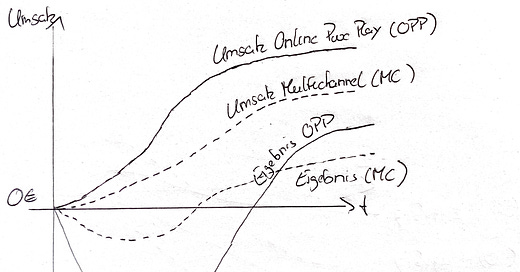 Umsatz
Umsatz Online Pure Play (OPP)
Umsatz Multichannel (MC)
Ergebnis OPP
Ergebnis (MC)
0€
t